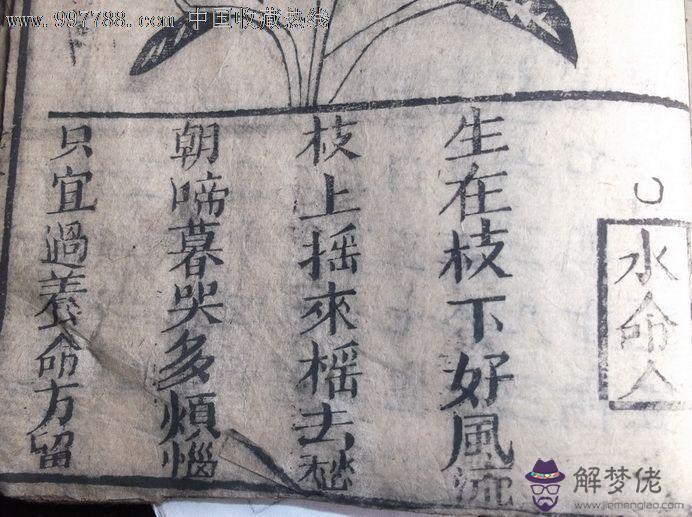 www.997788.com 中国收藏热线
水命人
生在枝下好風流
枝上摇來摇去愁
朝啼暮哭多煩惱
只宜過養命方留
解梦佬
www.jiemenglao.com